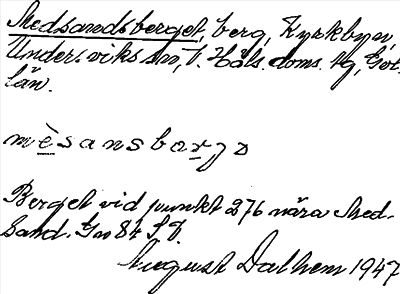 Medsandsberget, berg, Kyrkbyn,
Undersviks sn, V. Häls. doms. tg, Gvl.
län.
mèsansbarjə
Berget vid punkt 276 nära Med-
sand. Gn 84 S Ö.
August Dalhem 1947